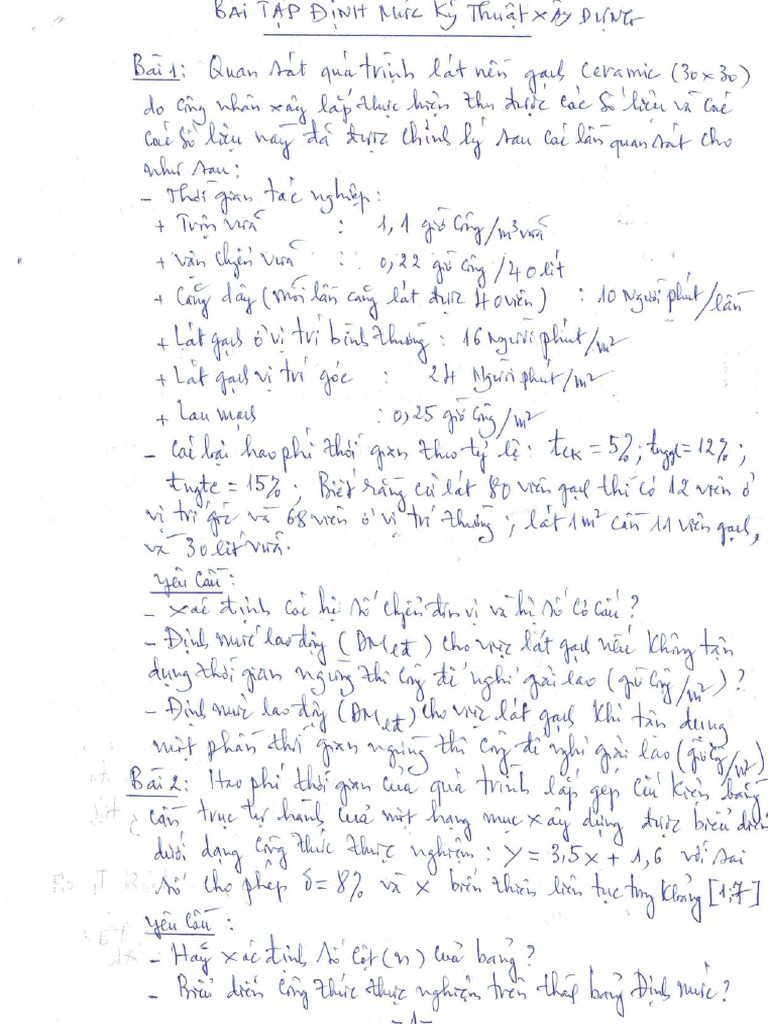 BÀI TẬP ĐỊNH MỨC KỸ THUẬT XÂY DỰNG
Bài 1: Quan sát quá trình lát nền gạch ceramic (30x30)
do công nhân xây lắp thực hiện thu được các số liệu và các
các số liệu này đã được chỉnh lý sau các lần quan sát cho
như sau:
- Thời gian tác nghiệp:
+ Trộn vữa : 1,1 giờ công/m³vữa
+ vận chuyển vữa : 0,22 giờ công/40 lít
+ Căng dây (mỗi lần căng lát được 40 viên) : 10 Người phút/lần
+ Lát gạch ở vị trí bình thường : 16 Người phút/m²
+ Lát gạch vị trí góc : 24 Người phút/m²
+ Lau mạch : 0,25 giờ công/m²
- Các loại hao phí thời gian theo tỷ lệ: tck = 5%; tnggl = 12%;
tngtc = 15%; Biết rằng cứ lát 80 viên gạch thì có 12 viên ở
vị trí góc và 68 viên ở vị trí thường; lát 1m² cần 11 viên gạch,
và 30 lít vữa.
Yêu cầu:
- Xác định các hệ số chuyển đơn vị và hệ số cơ cấu?
- Định mức lao động (ĐMlđ) cho việc lát gạch nếu không tận
dụng thời gian ngừng thi công để nghỉ giải lao (giờ công/m²)?
- Định mức lao động (ĐMlđ) cho việc lát gạch khi tận dụng
một phần thời gian ngừng thi công để nghỉ giải lao (giờ công/m²)
Bài 2: Hao phí thời gian của quá trình lắp ghép cấu kiện bằng
cần trục tự hành của một hạng mục xây dựng được biểu diễn
dưới dạng công thức thực nghiệm: y = 3,5x + 1,6 với sai
số cho phép δ = 8% và x biến thiên liên tục trong khoảng [1;7]
Yêu cầu:
- Hãy xác định số cột (n) của bảng?
- Biểu diễn công thức thực nghiệm trên thành bảng Định mức?
-1-